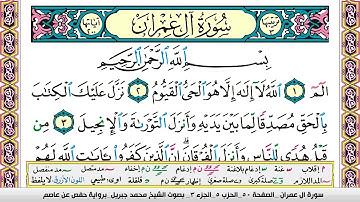 سورة آل عمران
بسم الله الرحمن الرحيم
الٓمٓ ١ ٱللَّهُ لَآ إِلَٰهَ إِلَّا هُوَ ٱلْحَىُّ ٱلْقَيُّومُ ٢ نَزَّلَ عَلَيْكَ ٱلْكِتَٰبَ
بِٱلْحَقِّ مُصَدِّقًا لِّمَا بَيْنَ يَدَيْهِ وَأَنزَلَ ٱلتَّوْرَىٰةَ وَٱلْإِنجِيلَ ٣ مِن
قَبْلُ هُدًى لِّلنَّاسِ وَأَنزَلَ ٱلْفُرْقَانَ إِنَّ ٱلَّذِينَ كَفَرُوا۟ بِـَٔايَٰتِ ٱللَّهِ لَهُمْ
سورة آل عمران - الصفحة ٥٠ - الحزب ٥ - الجزء ٣ - بصوت الشيخ محمد جبريل - برواية حفص عن عاصم